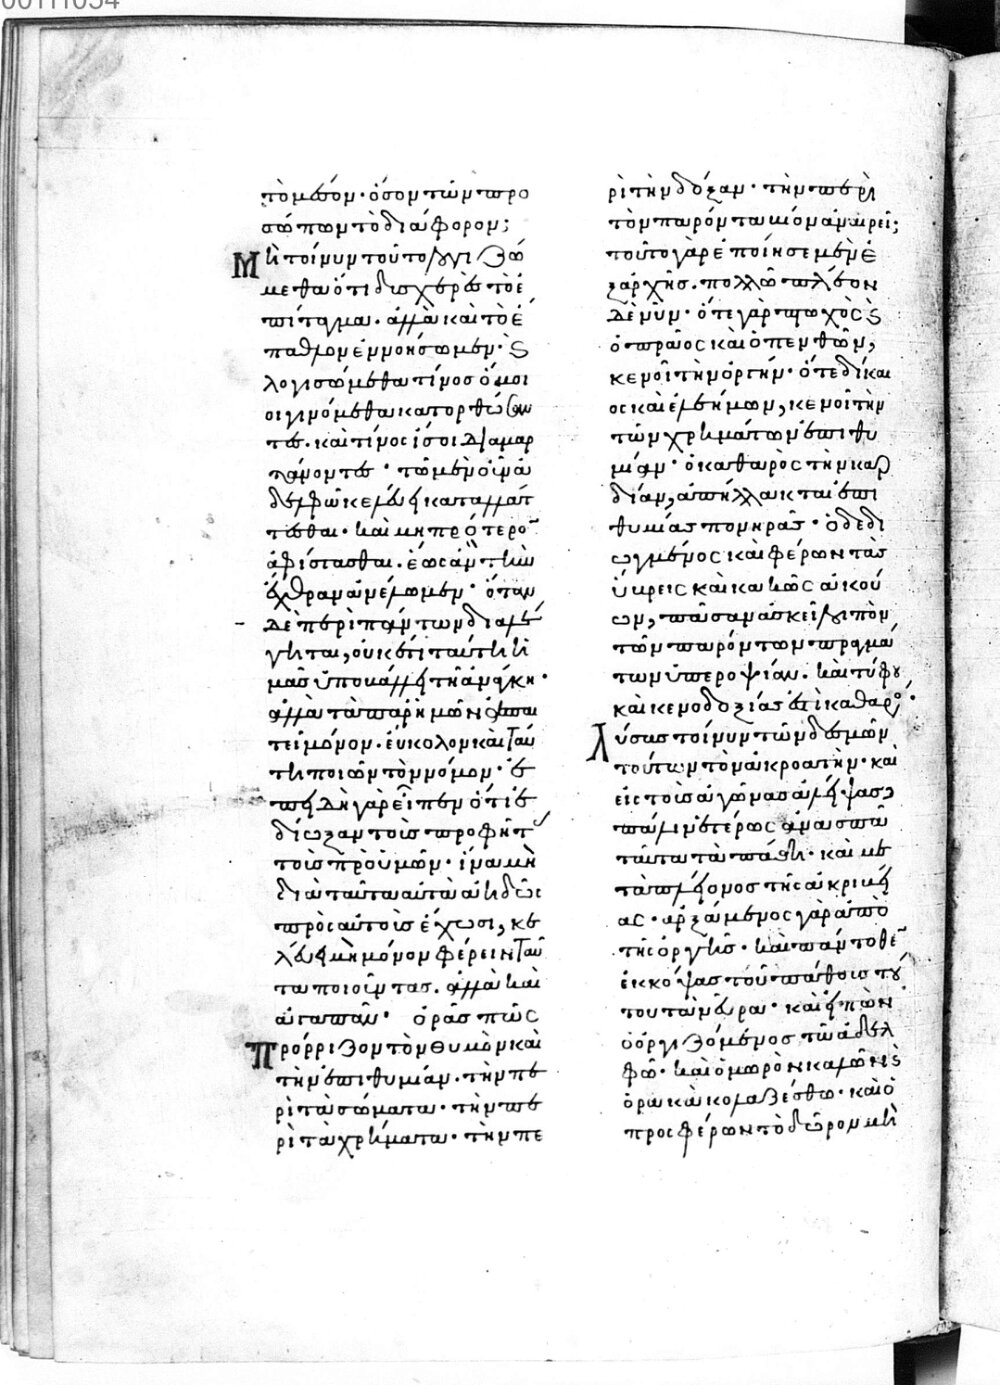 00111034
τὸ μέσον· ὅσον τῶν προ
σώπων τὸ διάφορον;
Μὴ τοίνυν τοῦτο λογιζώ
μεθα ὅτι δυσχερὲς τὸ ἐ
πίταγμα. ἀλλὰ καὶ τὸ ἔ
παθλον ἐννοήσωμεν· καὶ
λογισώμεθα τίνος ὅμοι
οι γινόμεθα κατορθώσαν
τες. καὶ τίνος ἴσοι διαμαρ
τάνοντες· τῶ μὲν οὖν ἀ
δελφῶ κελεύει καταλλάτ
τεσθαι· καὶ μὴ πρότερον
ἀφίστασθαι. ἕως ἂν τὴν
ἔχθραν ἀνέλωμεν· ὅταν
δὲ περὶ πάντων διαλέ
γηται, οὐκέτι ταύτηι ἡ
μᾶς ὑποβάλλει τῆ ἀνάγκη·
ἀλλὰ τὰ παρ' ἡμῶν ἀπαι
τεῖ μόνον. εὔκολον καὶ ταύ
τη ποιῶν τὸν νόμον· ἐ
πειδὴ γὰρ εἶπεν ὅτι ἐ
δίωξαν τοὺς προφήτας
τοὺς πρὸ ὑμῶν· ἵνα μὴ
διὰ ταῦτα αὐτὰ ἀηδῶς
πρὸς αὐτοὺς ἔχωσι, κε
λεύει μὴ μόνον φέρειν ταῦ
τα ποιοῦντας. ἀλλὰ καὶ
ἀγαπᾶν· ὁρᾶς πῶς
πρόρριζον τὸν θυμὸν καὶ
τὴν ἐπιθυμίαν. τὴν πε
ρὶ τὰ σώματα· τὴν πε
ρὶ τὰ χρήματα· τὴν πε
ρὶ τὴν δόξαν· τὴν περὶ
τὸν παρόντα αἰῶνα ἀναιρεῖ;
τοῦτο γὰρ ἐποίησε μὲν ἐ
ξαρχῆς. πολλῶ πλέον
δὲ νῦν· ὅτε γὰρ πτωχὸς καὶ
ὁ πρᾶος καὶ ὁ πενθῶν,
κενοῖ τὴν ὀργήν· ὅτε δίκαι
ος καὶ ἐλεήμων, κενοῖ τὴν
τῶν χρημάτων ἐπιθυ
μίαν· ὁ καθαρὸς τὴν καρ
δίαν, ἀπήλλακται ἐπι
θυμίας πονηρᾶς· ὁ δεδι
ωγμένος καὶ φέρων τὰς
ὕβρεις καὶ κακῶς ἀκού
ων, πᾶσαν ἀσκεῖ λοιπὸν
τῶν παρόντων πραγμά
των ὑπεροψίαν. καὶ τύφου
καὶ κενοδοξίας ἐστὶ καθαρός·
Λύσας τοίνυν τῶν δεσμῶν
τούτων τὸν ἀκροατὴν· καὶ
εἰς τοὺς ἀγῶνας ἀλείψας,
πάλιν ἑτέρως ἀνασπᾶ
ταῦτα τὰ πάθη· καὶ με
τὰ πλείονος τῆς ἀκριβεί
ας· ἀρξάμενος γὰρ ἀπὸ
τῆς ὀργῆς· καὶ πάντοθεν
ἐκκόψας τοῦ πάθους τού
του τὰ νεῦρα· καὶ εἰπὼν
ὁ ὀργιζόμενος τῶ ἀδελ
φῶ· καὶ ὁ μωρὸν καλῶν καὶ
ὁ ῥακὰ κολαζέσθω· καὶ ὁ
προσφέρων τὸ δῶρον μὴ